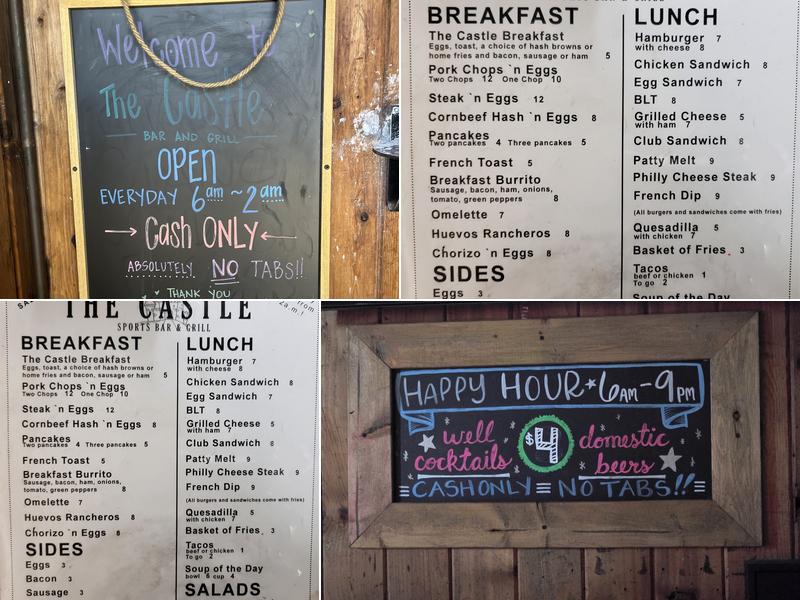 Welcome to
The Castle
BAR AND GRILL
OPEN
EVERYDAY 6am ~ 2am
→ Cash ONLY ←
ABSOLUTELY NO TABS!!
THANK YOU
BREAKFAST
The Castle Breakfast
Eggs, toast, a choice of hash browns or
home fries and bacon, sausage or ham 5
Pork Chops `n Eggs
Two Chops 12 One Chop 10
Steak `n Eggs 12
Cornbeef Hash `n Eggs 8
Pancakes
Two pancakes 4 Three pancakes 5
French Toast 5
Breakfast Burrito
Sausage, bacon, ham, onions,
tomato, green peppers 8
Omelette 7
Huevos Rancheros 8
Chorizo `n Eggs 8
SIDES
Eggs 3
LUNCH
Hamburger 7
with cheese 8
Chicken Sandwich 8
Egg Sandwich 7
BLT 8
Grilled Cheese 5
with ham 7
Club Sandwich 8
Patty Melt 9
Philly Cheese Steak 9
French Dip 9
(All burgers and sandwiches come with fries)
Quesadilla 5
with chicken 7
Basket of Fries 3
Tacos
beef or chicken 1
To go 2
Soup of the Day
THE CASTLE
SPORTS BAR & GRILL
from
2a.m.!
BREAKFAST
The Castle Breakfast
Eggs, toast, a choice of hash browns or
home fries and bacon, sausage or ham 5
Pork Chops `n Eggs
Two Chops 12 One Chop 10
Steak `n Eggs 12
Cornbeef Hash `n Eggs 8
Pancakes
Two pancakes 4 Three pancakes 5
French Toast 5
Breakfast Burrito
Sausage, bacon, ham, onions,
tomato, green peppers 8
Omelette 7
Huevos Rancheros 8
Chorizo `n Eggs 8
SIDES
Eggs 3
Bacon 3
Sausage 3
LUNCH
Hamburger 7
with cheese 8
Chicken Sandwich 8
Egg Sandwich 7
BLT 8
Grilled Cheese 5
with ham 7
Club Sandwich 8
Patty Melt 9
Philly Cheese Steak 9
French Dip 9
(All burgers and sandwiches come with fries)
Quesadilla 5
with chicken 7
Basket of Fries 3
Tacos
beef or chicken 1
To go 2
Soup of the Day
bowl 6 cup 4
SALADS
HAPPY HOUR ★ 6AM-9PM
well cocktails
$4
domestic beers
CASH ONLY NO TABS!!